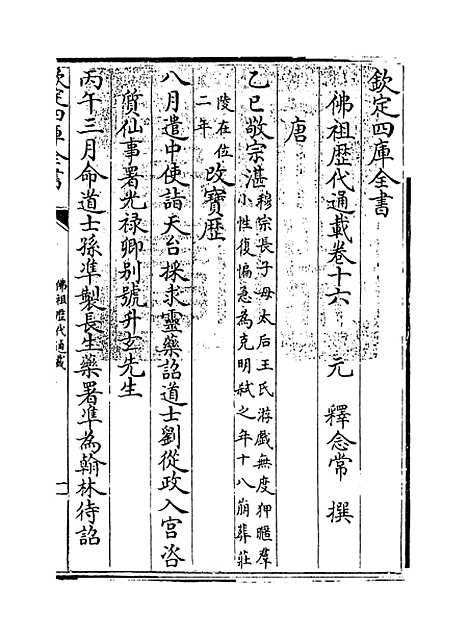 欽定四庫全書
佛祖歴代通載卷十六　元　釋念常　撰
唐
乙巳敬宗湛穆宗長子母太后王氏游戲無度狎暱羣
小性復褊急為克明弑之年十八崩葬莊
陵在位
二年改寳歴
八月遣中使詣天台採求靈藥詔道士劉從政入宫咨
質仙事署光禄卿别號升𤣥先生
丙午三月命道士孫準製長生藥署準為翰林待詔
欽定四庫全書
佛祖歴代通載
一